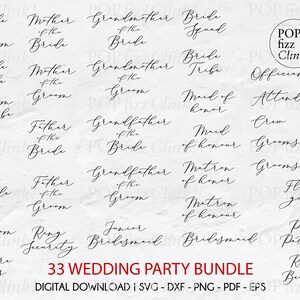 Mother
of the
Bride
Mother
of the
Groom
Father
of the
Bride
Father
of the
Groom
Ring
Security
Grandmother
of the
Bride
Grandmother
of the
Groom
Grandfather
of the
Bride
Grandfather
of the
Groom
Junior
Bridesmaid
Bride
Squad
Bride
Tribe
Maid of
honor
Maid
of honour
Matron
of honor
Matron
of honour
Bridesmaid
POP
fizz
Clink
33 WEDDING PARTY BUNDLE
DIGITAL DOWNLOAD | SVG - DXF - PNG - PDF - EPS